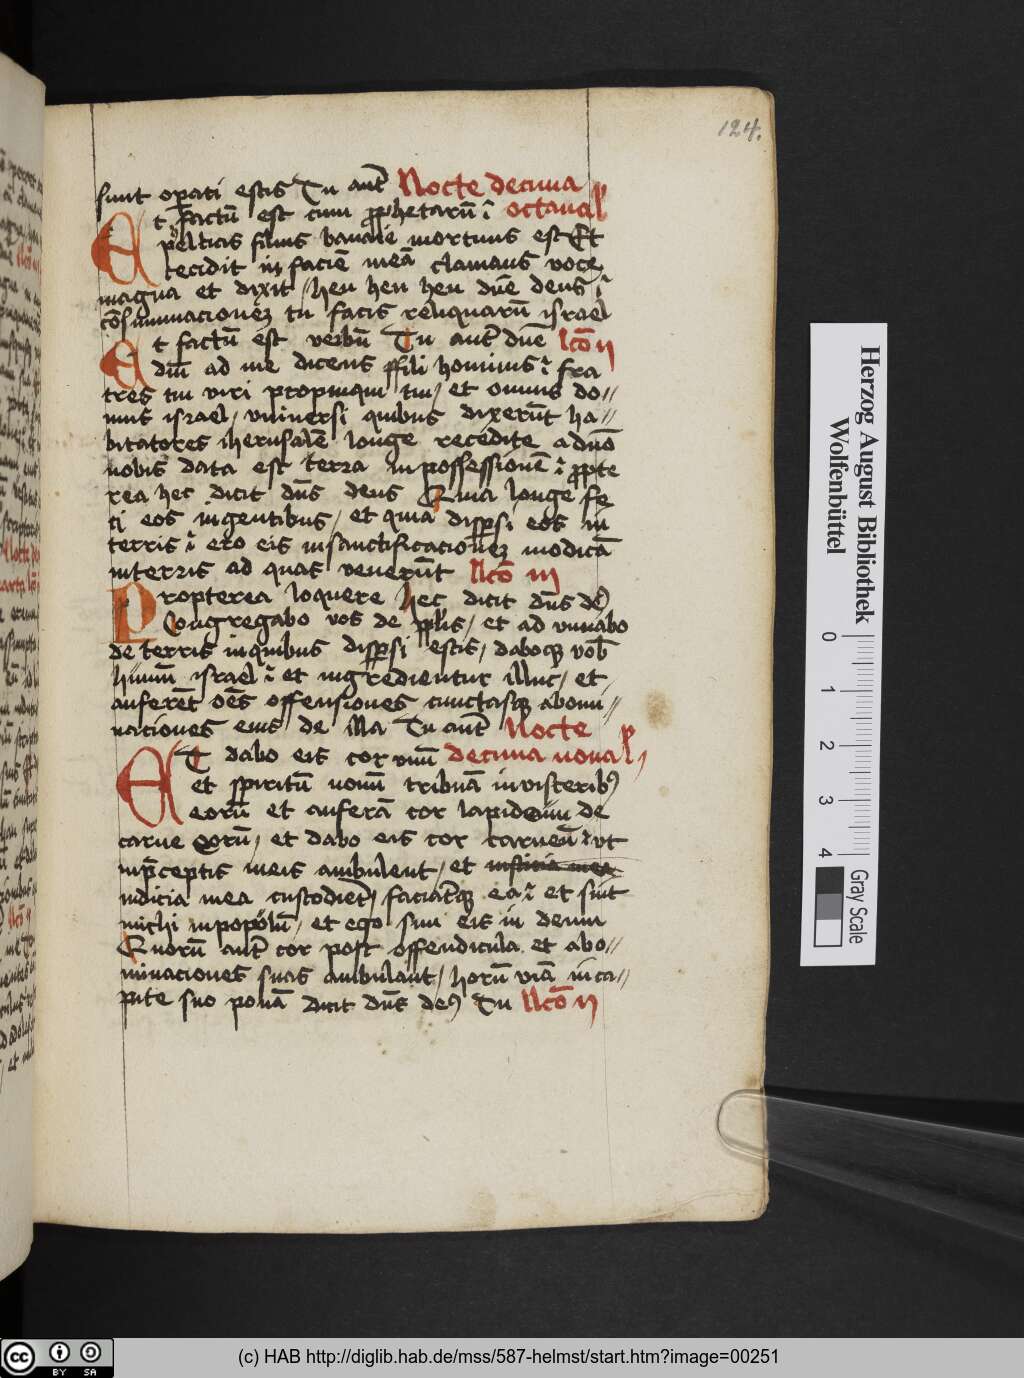 124.
sunt operati estis Tu aut̄ Nocte decima
Et factū est cum ꝓphetarū ī octaua
pheltias filius banaie mortuus est Et
cecidit in faciē meā clamans voce
magna et dixit / heu heu heu dn̄e deus
cōsummacionēz tu facis reliquarū israel
Et factū est verbū Tu aut̄ dn̄e lc̄o ii
dn̄i ad me dicens ffili hominis fra
tres tui viri propinqui tui / et omnis do//
mus israel / vniuersi quibus dixerūt ha//
bitatores iherusalē longe recedite a dn̄o
nobis data est terra in possessionē ꝓpte
rea hec dicit dn̄s deus Quia longe fe
ci eos in gentibus / et quia disꝑsi eos in
terris ero eis in sanctificacionēz modicā
in terris ad quas venerūt llc̄o iii
Propterea loquere hec dicit dn̄s de9
Congregabo vos de ppl̄is / et ad vnnabo
de terris in quibus disꝑsi estis / daboqꝫ vob̄
humū israel et ingredientur illuc / et
auferēt oēs offensiones cunctasqꝫ abomi//
naciones eius de illa Tu aut̄ Nocte
ET dabo eis cor vnū decima nona
et spiritū nouū tribuā in visceribꝫ
eorū et auferā cor lapideum de
carne eorū / et dabo eis cor carneū vt
in p̄ceptis meis ambulent / et iusticia mea
iudicia mea custodiēt / faciātqꝫ ea et sint
michi in popolū / et ego sim eis in deum
Quorū aut̄ cor post offendicula et abo//
minaciones suas ambulant / horū viā in ca//
pite suo ponā dicit dn̄s de9 Tu llc̄o ii
Herzog August Bibliothek
Wolfenbüttel
0 1 2 3 4
Gray Scale
cc BY SA
(c) HAB http://diglib.hab.de/mss/587-helmst/start.htm?image=00251